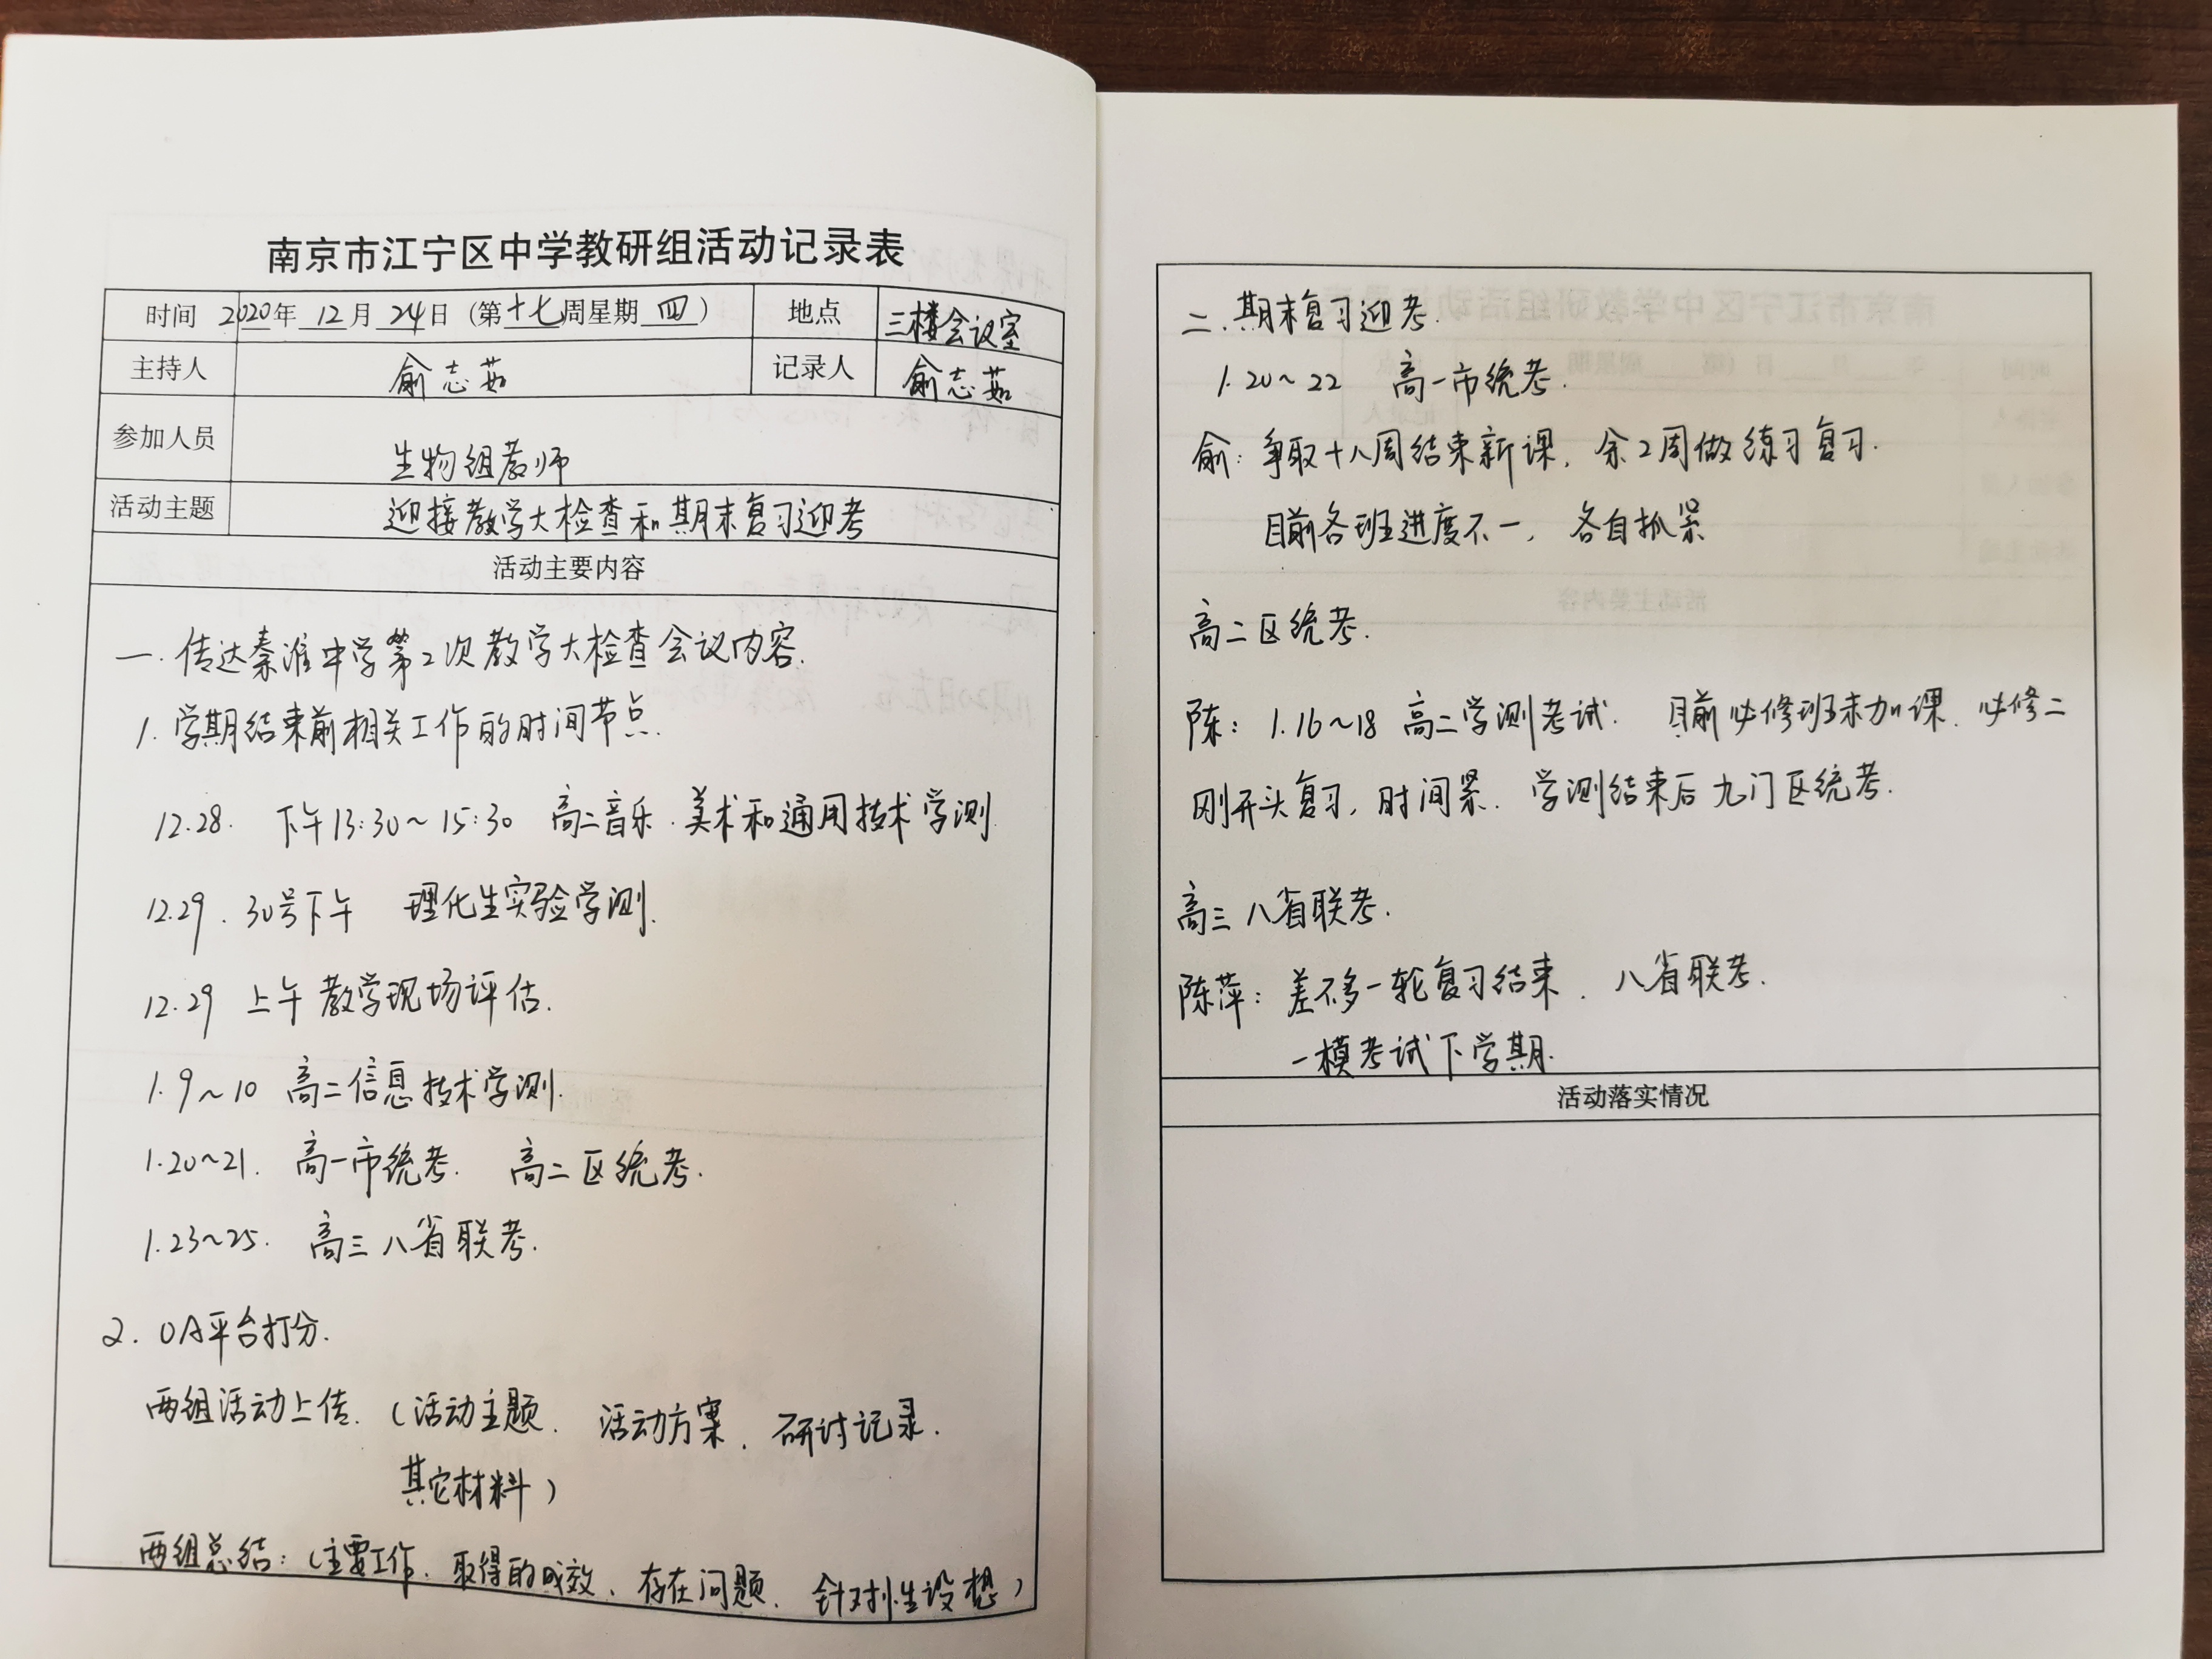 南京市江宁区中学教研组活动记录表
时间 2020年 12月 24日 (第十七周星期四) 地点 三楼会议室
主持人 俞志茹 记录人 俞志茹
参加人员 生物组教师
活动主题 迎接教学大检查和期末复习迎考
活动主要内容
一. 传达秦淮中学第2次教学大检查会议内容.
1. 学期结束前相关工作的时间节点.
12.28. 下午13:30~15:30 高二音乐.美术和通用技术学测.
12.29、30号下午 理化生实验学测.
12.29 上午 教学现场评估.
1.9~10 高二信息技术学测.
1.20~21. 高一市统考. 高二区统考.
1.23~25. 高三八省联考.
2. OA平台打分.
两组活动上传. (活动主题、活动方案、研讨记录.
其它材料)
两组总结: (主要工作、取得的成效、存在问题、针对性设想)
二. 期末复习迎考.
1.20~22 高一市统考.
俞: 争取十八周结束新课, 余2周做练习复习.
目前各班进度不一, 各自抓紧
高二区统考.
陈: 1.16~18 高二学测考试. 目前必修班未加课. 必修二
刚开头复习, 时间紧. 学测结束后九门区统考.
高三八省联考.
陈萍: 差不多一轮复习结束. 八省联考.
一模考试下学期.
活动落实情况